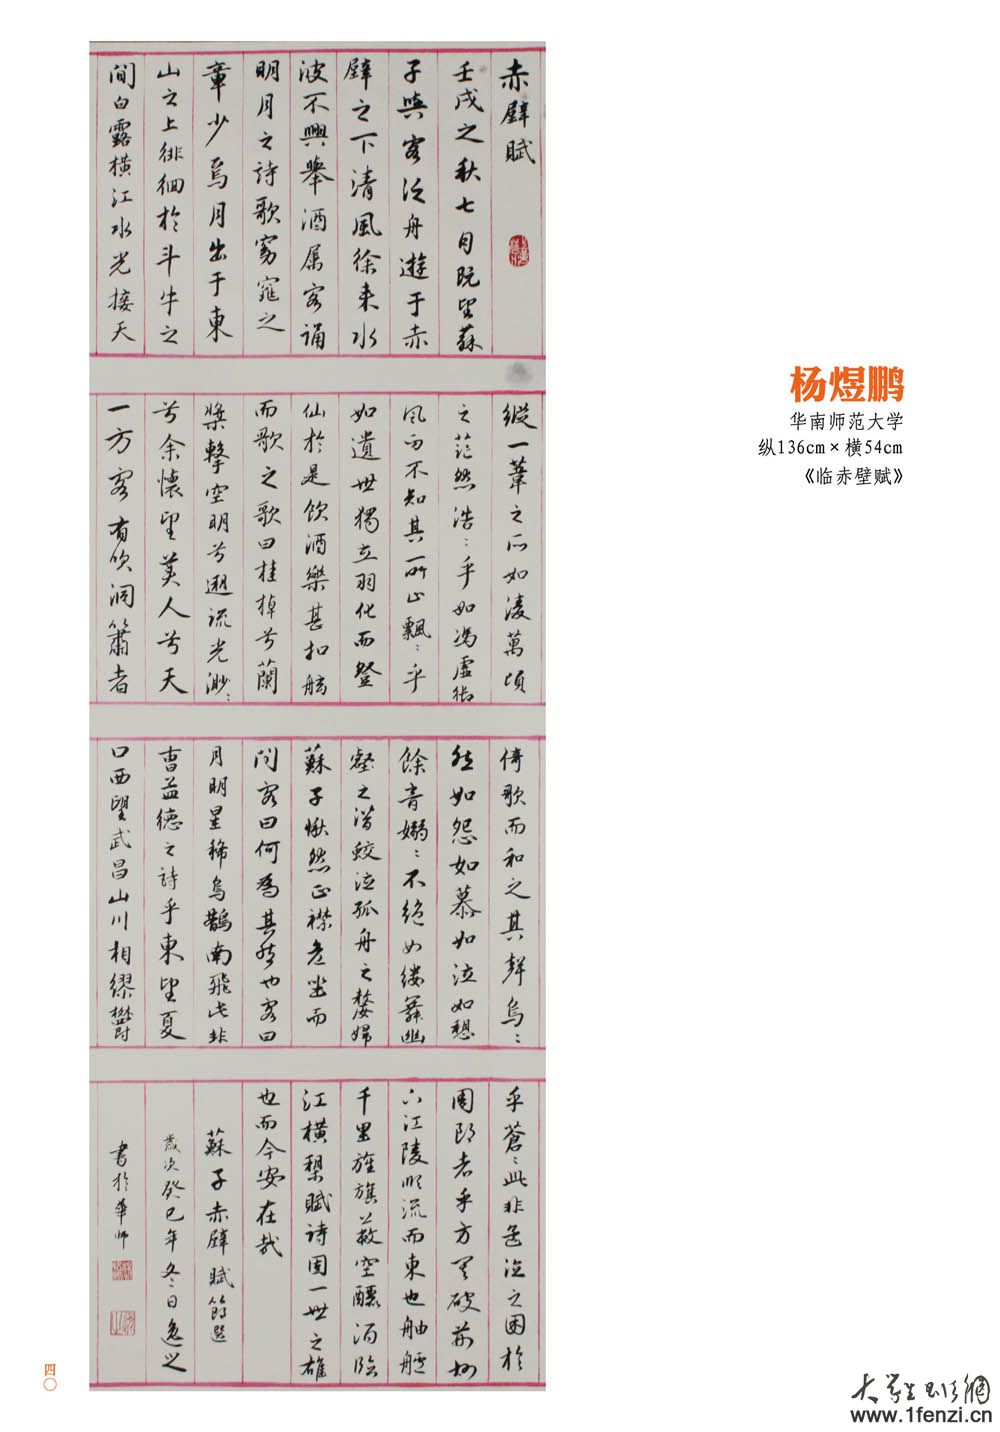 赤壁賦
壬戌之秋七月既望蘇
子與客泛舟遊于赤
壁之下清風徐来水
波不興舉酒属客誦
明月之詩歌窈窕之
章少焉月出于東
山之上徘徊於斗牛之
間白露橫江水光接天
縱一葦之所如凌萬頃
之茫然浩：乎如馮虛御
風而不知其所止飄：乎
如遺世獨立羽化而登
仙於是飲酒樂甚扣舷
而歌之歌曰桂棹兮蘭
槳擊空明兮遡流光渺：
兮余懷望美人兮天
一方客有吹洞簫者
倚歌而和之其聲烏：
然如怨如慕如泣如愬
餘音嫋：不絕如縷舞幽
壑之潛蛟泣孤舟之嫠婦
蘇子愀然正襟危坐而
問客曰何為其然也客曰
月明星稀烏鵲南飛此非
曹孟德之詩乎東望夏
口西望武昌山川相繆鬱
乎蒼：此非孟德之困於
周郎者乎方其破荊州
下江陵順流而東也舳艫
千里旌旗蔽空釃酒臨
江橫槊賦詩固一世之雄
也而今安在哉
蘇子赤壁賦節選
歲次癸巳年冬日
書於華師
杨煜鹏
华南师范大学
纵136cm×横54cm
《临赤壁赋》
四〇
大学生书法網
www.1fenzi.cn